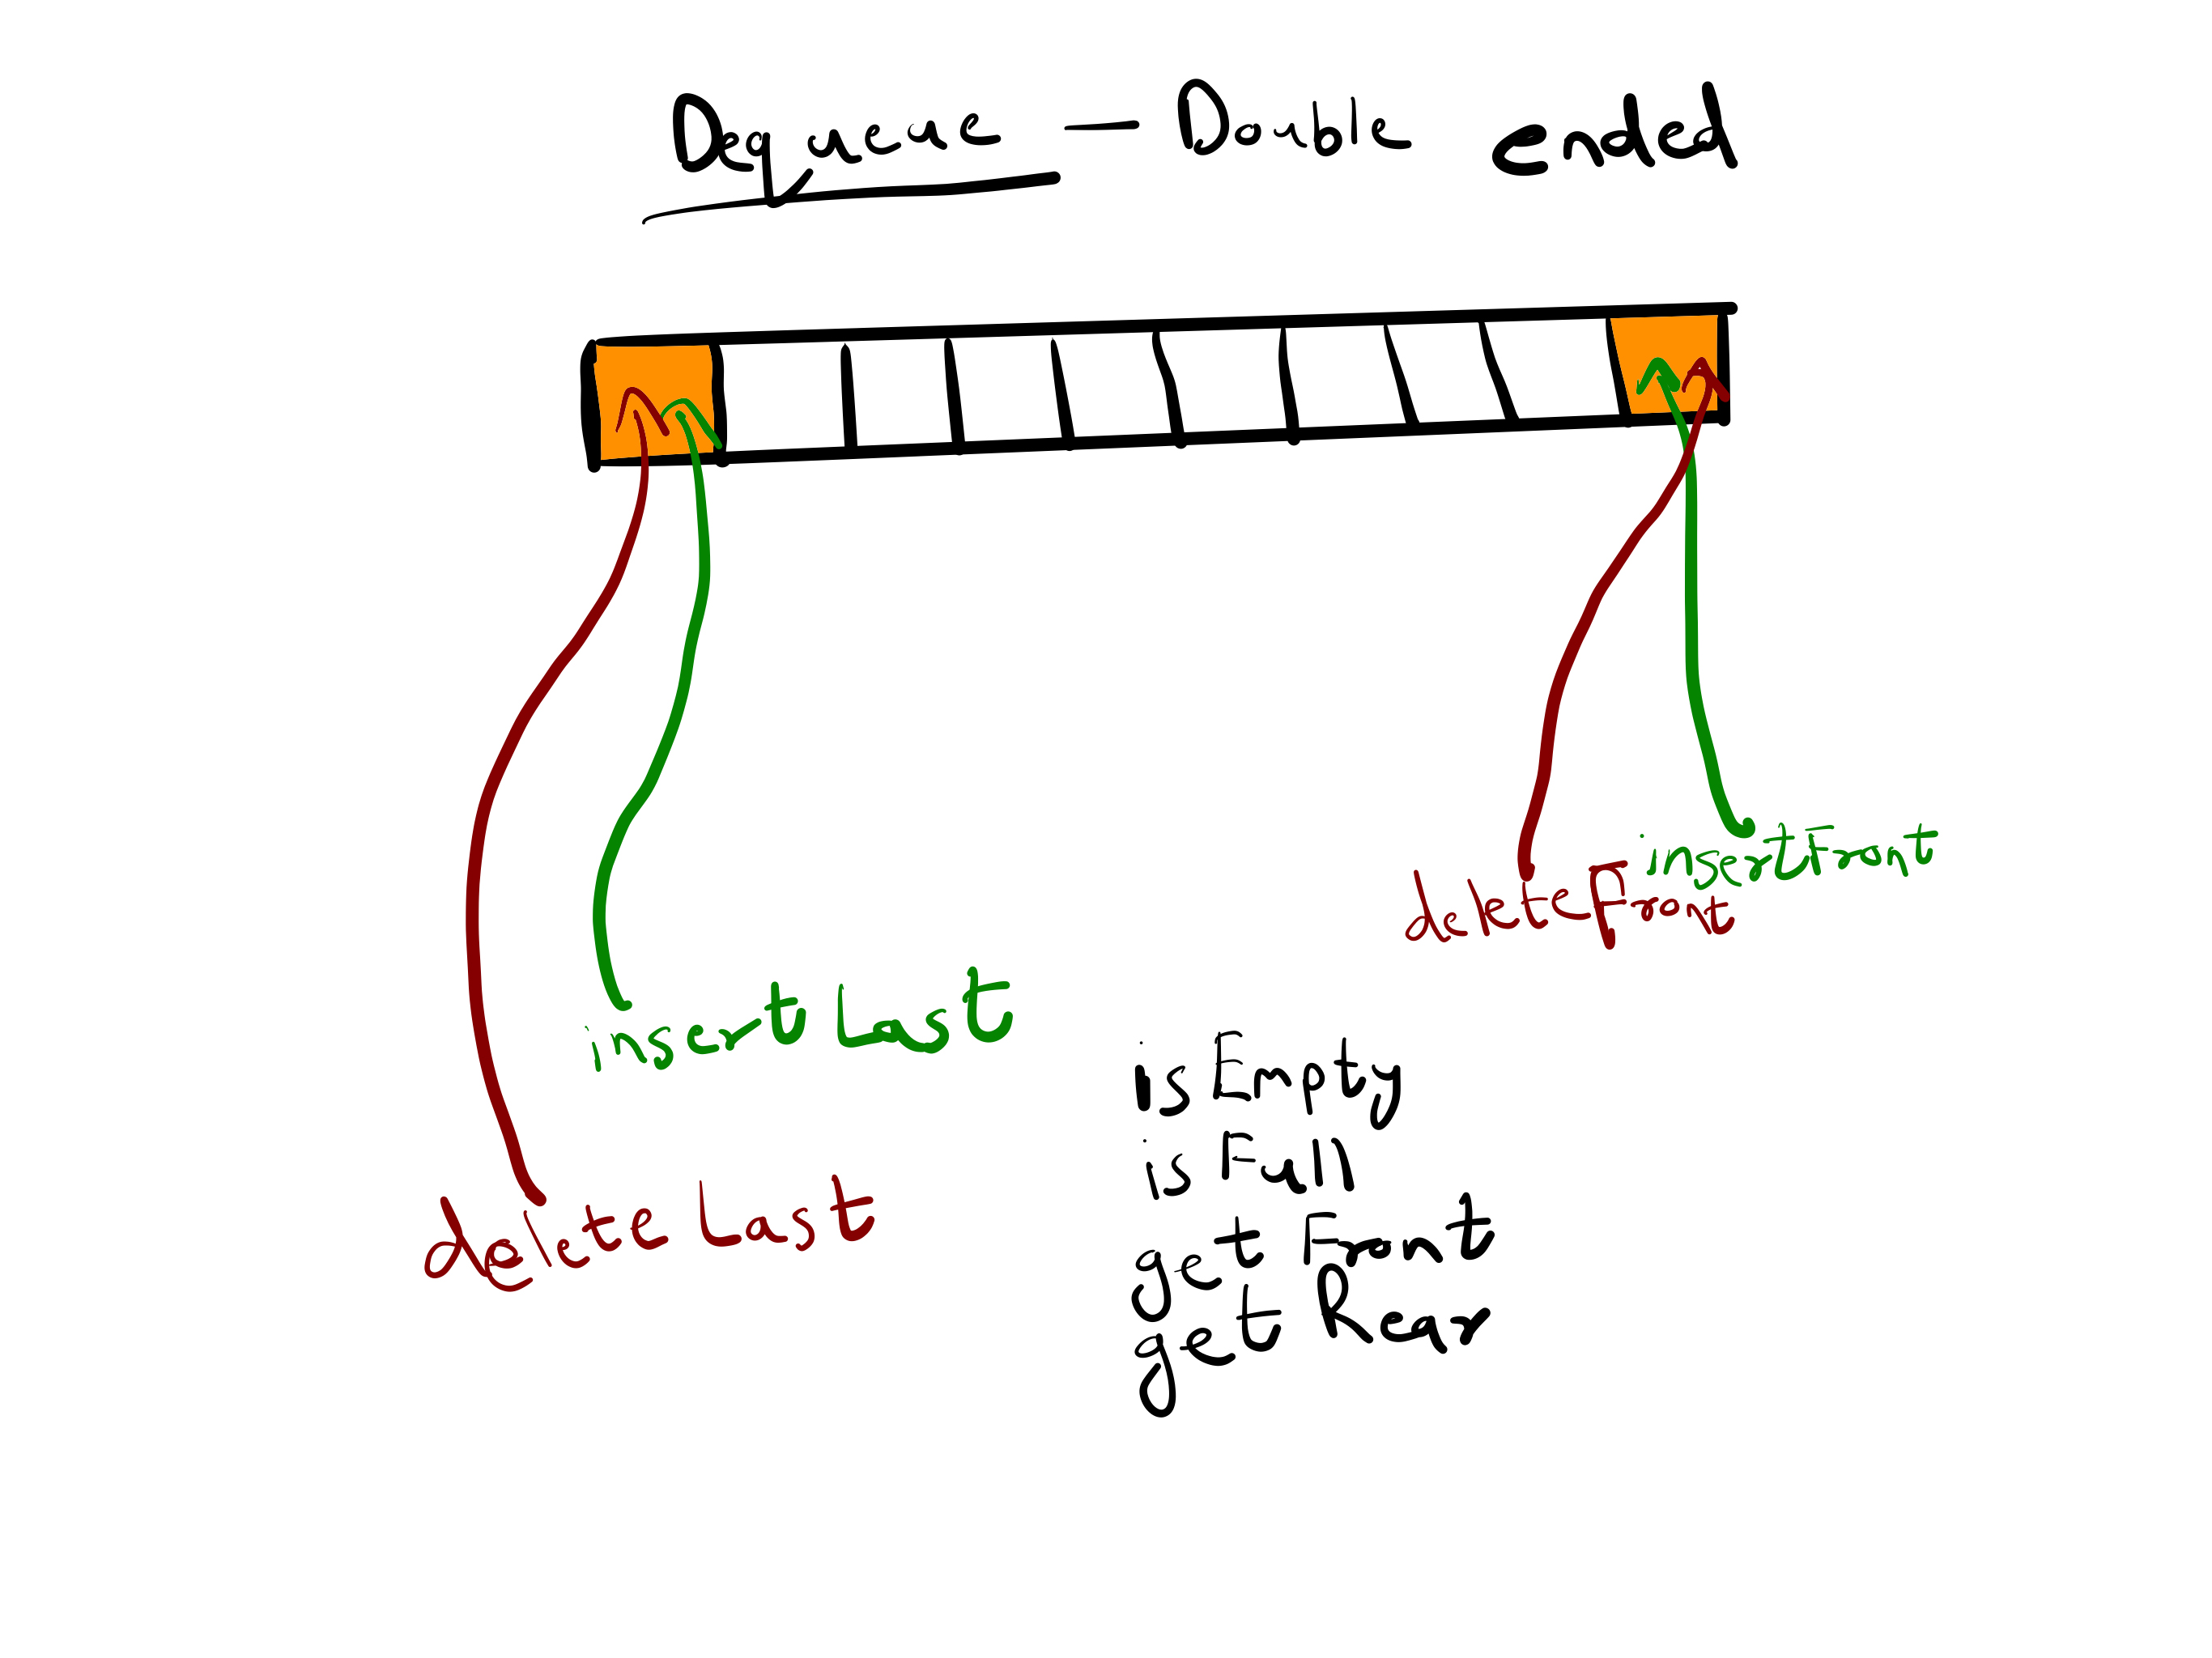 Dequeue — Double ended
insertFront
deleteFront
insert Last
delete Last
isEmpty
is Full
get Front
get Rear